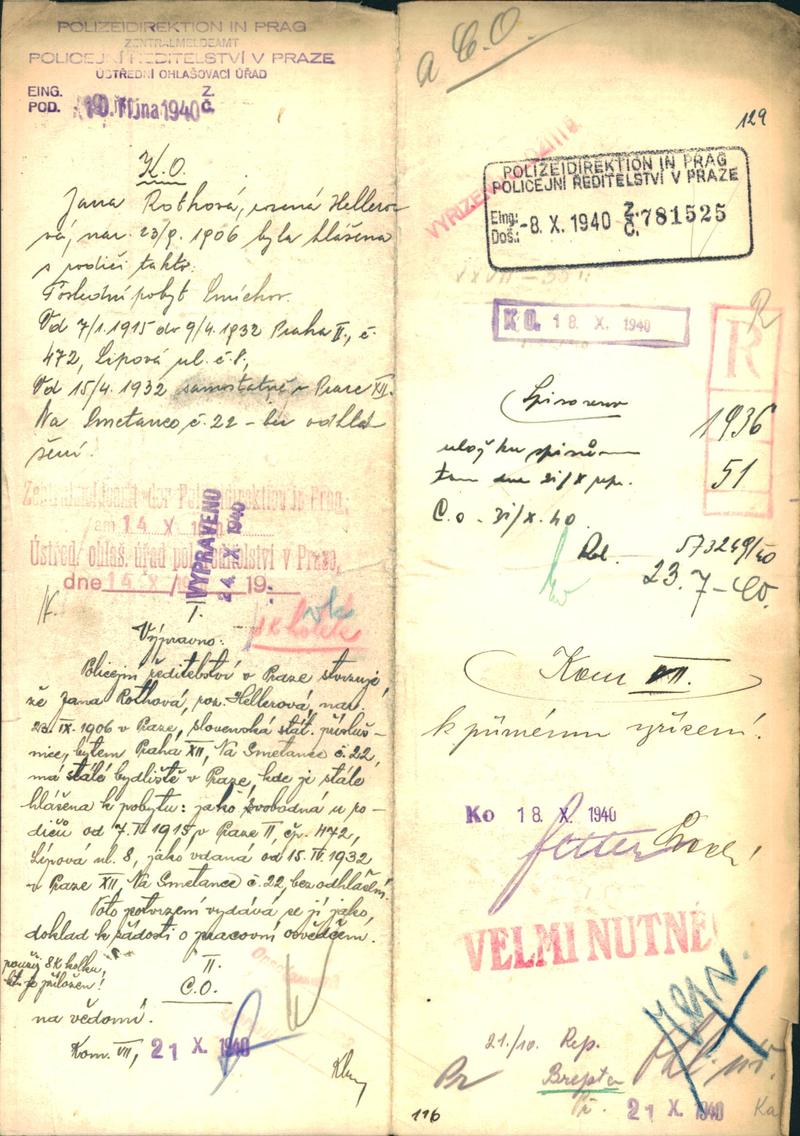 POLIZEIDIREKTION IN PRAG
ZENTRALMELDEAMT
POLICEJNÍ ŘEDITELSTVÍ V PRAZE
ÚSTŘEDNÍ OHLAŠOVACÍ ÚŘAD
EING. Z.
POD. 10. října 1940 Č.
K.O.
Jana Rothová, rozená Hellero-
vá, nar. 23/9. 1906 byla hlášena
s rodiči takto:
Poslední pobyt Smíchov.
Od 7/1.1915 do 9/4.1932 Praha II., č.
472, Lipová ul. č. 8,
Od 15/4. 1932 samostatně v Praze XII.
Na Smetance č. 22 - bez odhlá-
šení.
Zentralmeldeamt der Polizeidirektion in Prag,
am 14. X. 19
Ústřed. ohlaš. úřad pol. ředitelství v Praze,
dne 14. X. 19
VYPRAVENO
24. X. 1940
I.
Výpravno:
Policejní ředitelství v Praze stvrzuje,
že Jana Rothová, roz. Hellerová, nar.
23. IX. 1906 v Praze, slovenská stát. přísluš-
nice, bytem Praha XII, Na Smetance č. 22,
má stálé bydliště v Praze, kde je stále
hlášena k pobytu: jako svobodná u ro-
dičů od 7. I. 1915 v Praze II, čp. 472,
Lipová ul. 8, jako vdaná od 15. IV. 1932
v Praze XII, Na Smetance č. 22, bez odhlášení.
Toto potvrzení vydává se jí jako
doklad k žádosti o pracovní osvědčení.
použij 8 K kolku,
kt. je přiložen!
II.
C.O.
na vědomí.
Kom. VII, 21 X. 1940
a C.O.
129
POLIZEIDIREKTION IN PRAG
POLICEJNÍ ŘEDITELSTVÍ V PRAZE
Eing.: Z.
Doš.: -8. X. 1940 Č. 781525
K.O. 18. X. 1940
R
R
Spisovna
1936
51
C.o. 21/X. 40
573249/40
23. 7-40.
Kom VII.
k přímému vyřízení.
Ko 18 X. 1940
VELMI NUTNÉ!
21./10. Rep.
21 X. 1940
Ka
116